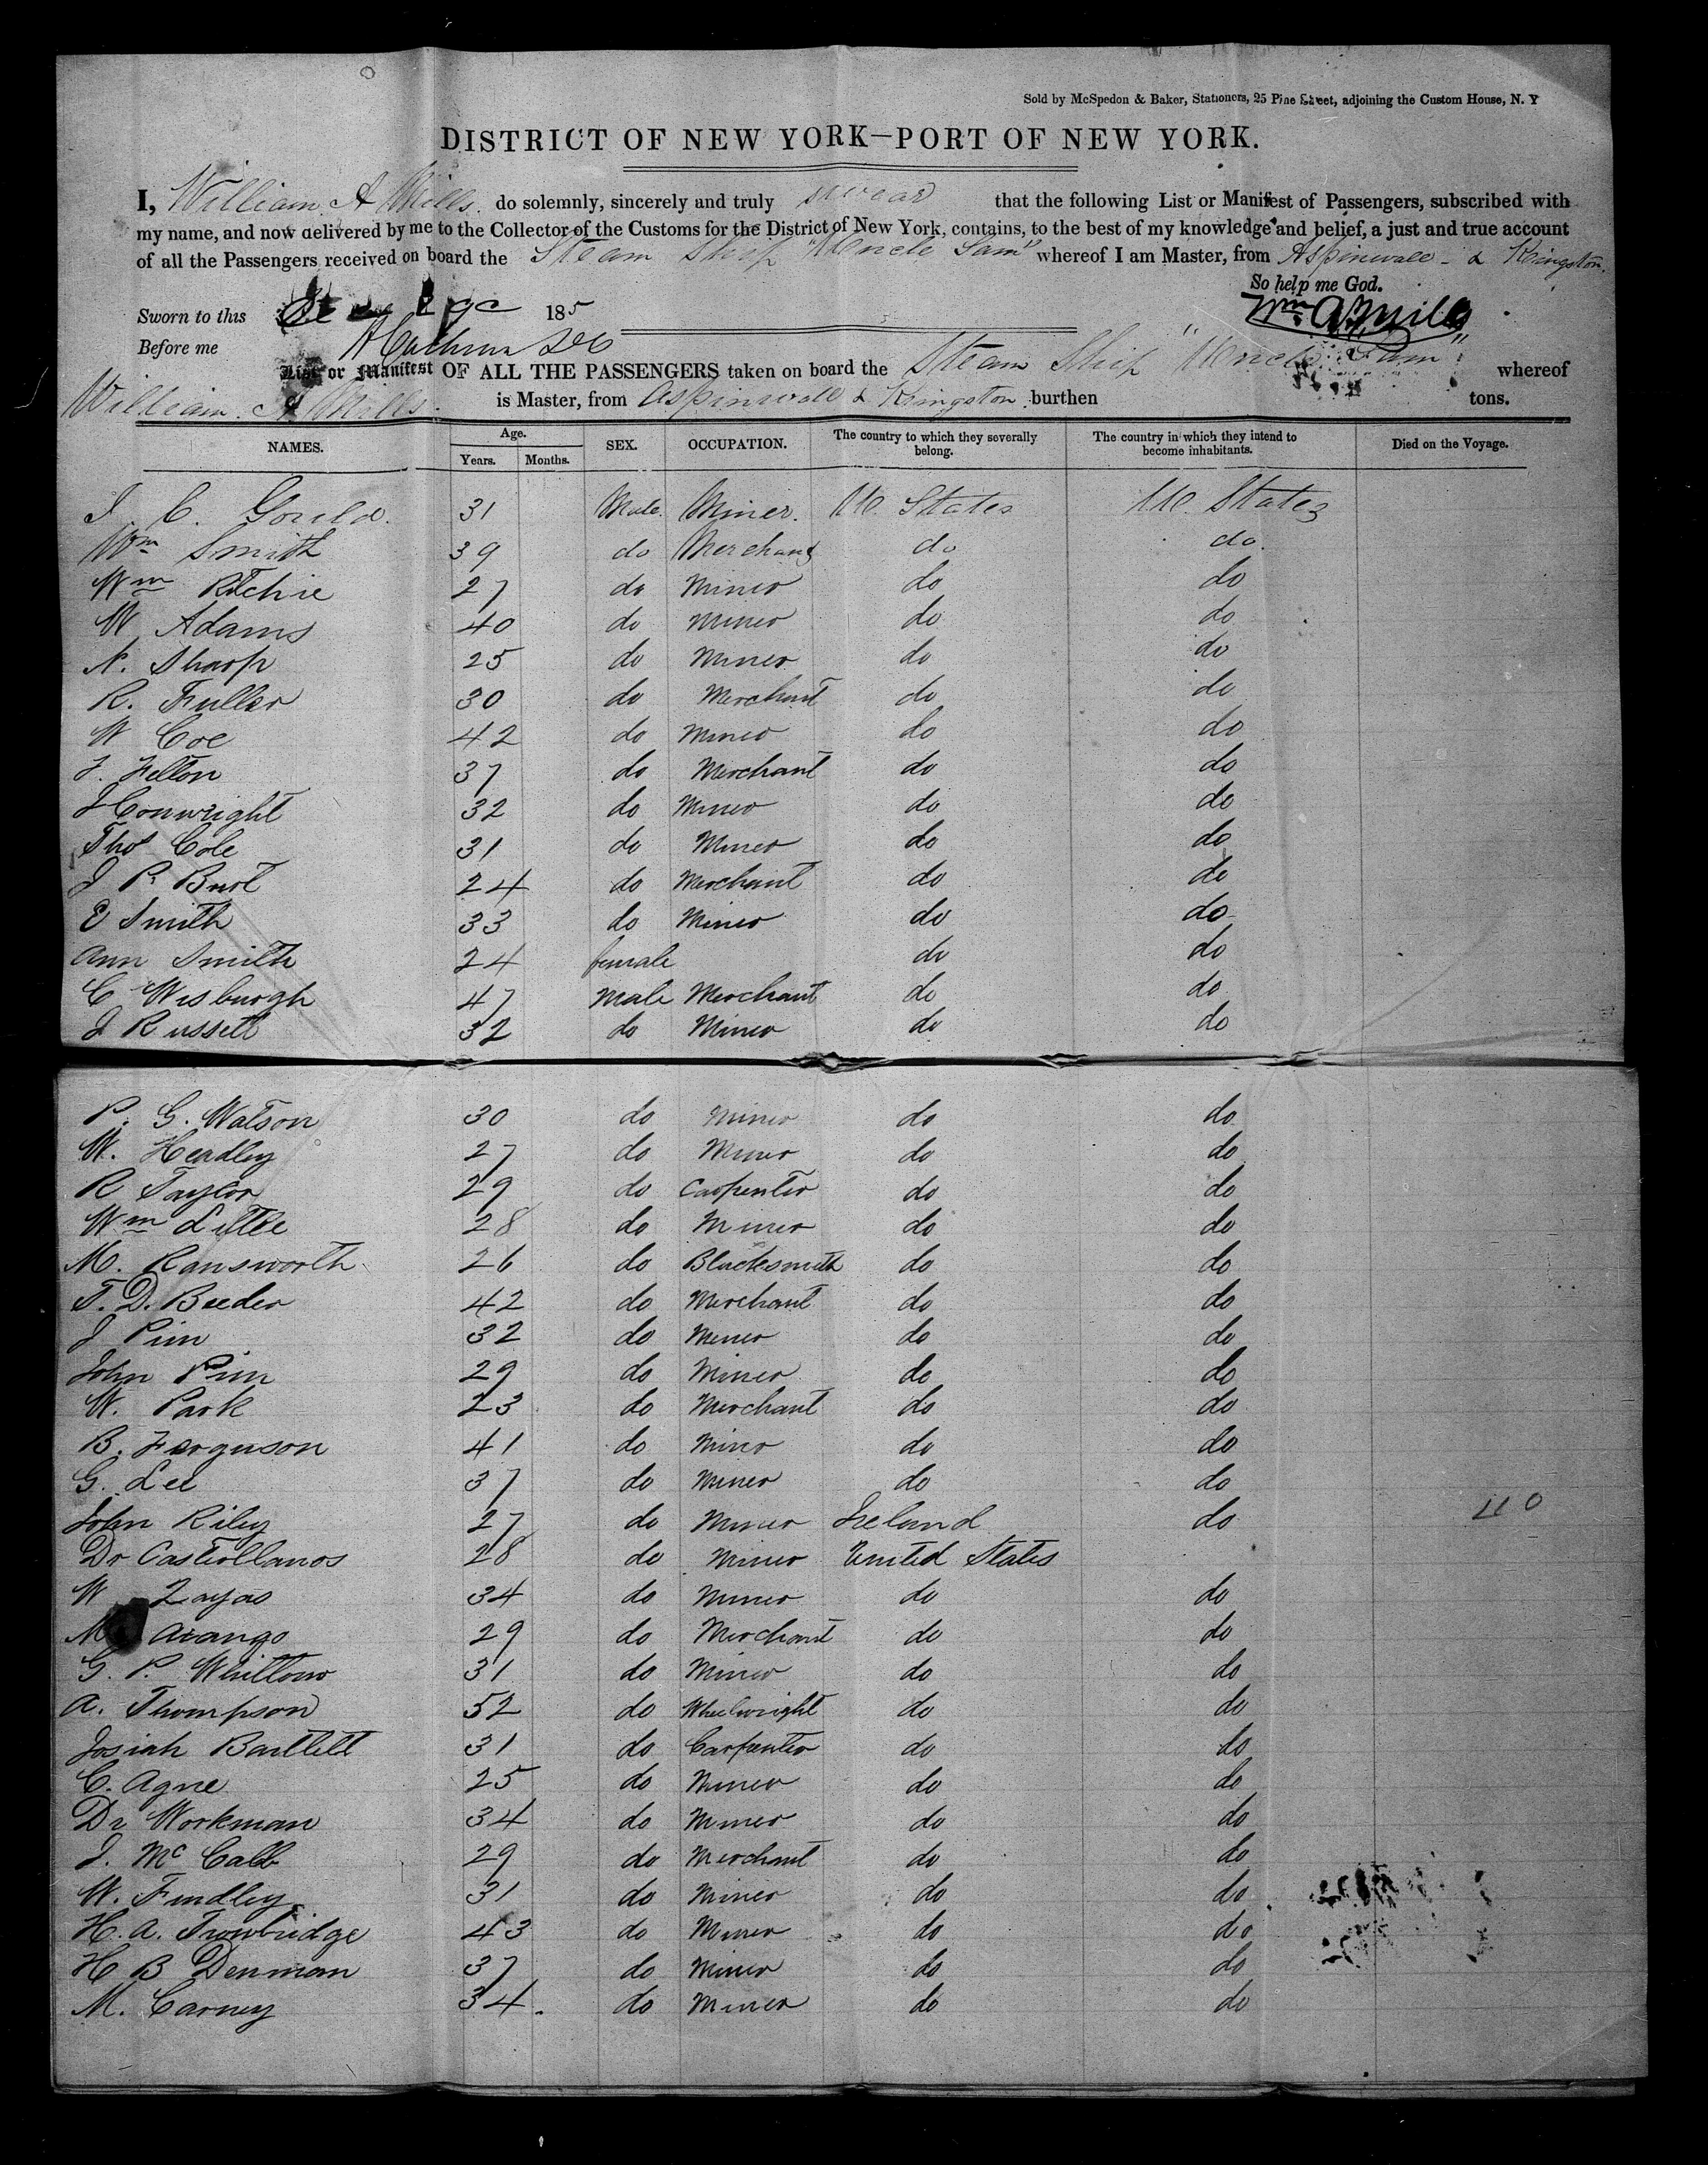 Sold by McSpedon & Baker, Stationers, 25 Pine Street, adjoining the Custom House, N. Y
DISTRICT OF NEW YORK—PORT OF NEW YORK.
I, William A Mills do solemnly, sincerely and truly swear that the following List or Manifest of Passengers, subscribed with
my name, and now delivered by me to the Collector of the Customs for the District of New York, contains, to the best of my knowledge and belief, a just and true account
of all the Passengers received on board the Steam Ship "Uncle Sam" whereof I am Master, from Aspinwall & Kingston.
So help me God.
Sworn to this 185
Wm A Mills
Before me
List or Manifest OF ALL THE PASSENGERS taken on board the Steam Ship "Uncle Sam" whereof
William A Mills is Master, from Aspinwall & Kingston burthen tons.
NAMES. Age. Years. Months. SEX. OCCUPATION. The country to which they severally belong. The country in which they intend to become inhabitants. Died on the Voyage.
J. C. Gould. 31 Male Miner. U. States U. States
Wm Smith 39 do Merchant do do
Wm Ritchie 27 do Miner do do
W Adams 40 do Miner do do
N. Sharp 25 do Miner do do
R. Fuller 30 do Merchant do do
W Coe 42 do Miner do do
J. Felton 37 do Merchant do do
J Conwright 32 do Miner do do
Thos Cole 31 do Miner do do
J P Burt 24 do Merchant do do
E Smith 33 do Miner do do
Ann Smith 24 female do do
C Wisburgh 47 Male Merchant do do
J Russell 32 do Miner do do
P. G. Watson 30 do Miner do do
W. Headley 27 do Miner do do
R Taylor 29 do Carpenter do do
Wm Little 28 do Miner do do
M. Ransworth 26 do Blacksmith do do
T. D. Beeder 42 do Merchant do do
J Pim 32 do Miner do do
John Pim 29 do Miner do do
W. Park 23 do Merchant do do
B. Ferguson 41 do Miner do do
G. Lee 37 do Miner do do
John Riley 27 do Miner Ireland do 40
Dr Castellanos 28 do Miner United States
W Zayas 34 do Miner do do
M Arango 29 do Merchant do do
G. P. Whittow 31 do Miner do do
A. Thompson 52 do Wheelwright do do
Josiah Bartlett 31 do Carpenter do do
C. Agne 25 do Miner do do
Dr Workman 34 do Miner do do
J. Mc Call 29 do Merchant do do
W. Findley 31 do Miner do do
H. A. Trowbridge 43 do Miner do do
H B Denman 37 do Miner do do
M. Carney 34. do Miner do do